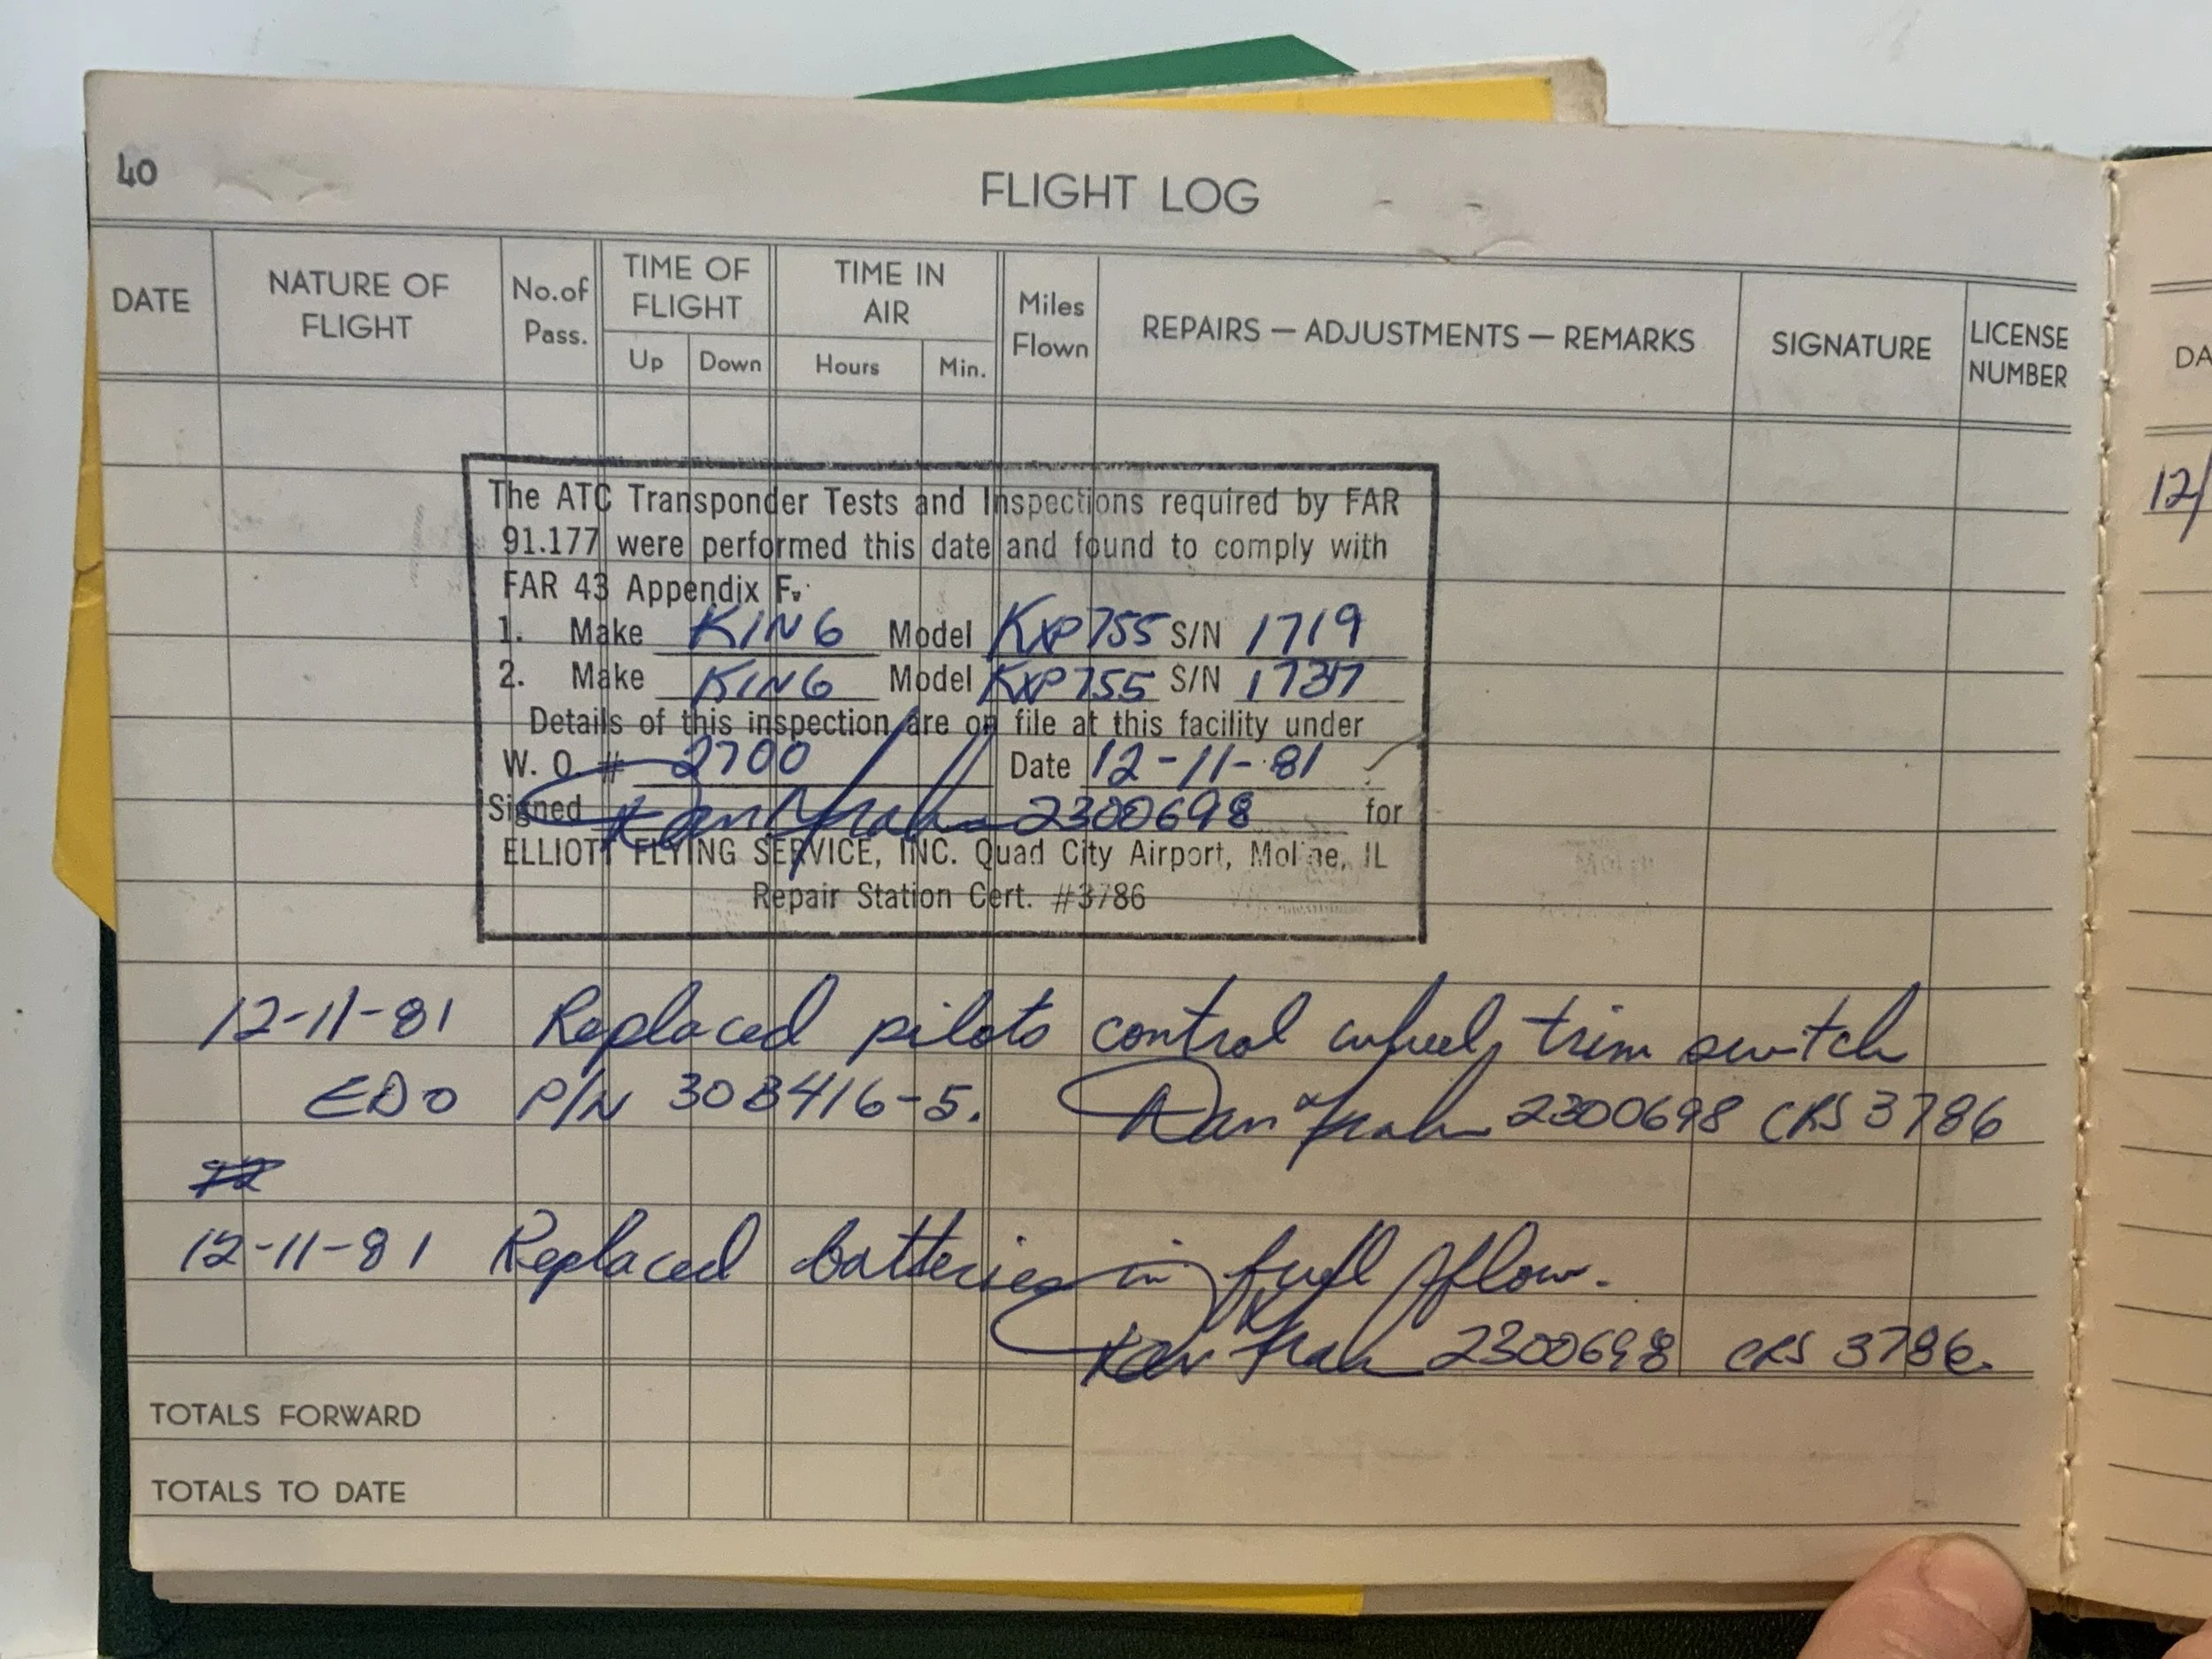 40
FLIGHT LOG
DATE NATURE OF FLIGHT No. of Pass. TIME OF FLIGHT TIME IN AIR Miles Flown REPAIRS — ADJUSTMENTS — REMARKS SIGNATURE LICENSE NUMBER DA
Up Down Hours Min.
12/
The ATC Transponder Tests and Inspections required by FAR
91.177 were performed this date and found to comply with
FAR 43 Appendix F.
1. Make KING Model KXP755 S/N 1719
2. Make KING Model KXP755 S/N 1737
Details of this inspection are on file at this facility under
W. O. # 2700 Date 12-11-81
Signed 2300698 for
ELLIOTT FLYING SERVICE, INC. Quad City Airport, Moline, IL
Repair Station Cert. #3786
12-11-81 Replaced pilots control wheel, trim switch
EDO P/N 30B416-5. 2300698 CRS 3786
12-11-81 Replaced batteries in fuel flow.
2300698 CRS 3786.
TOTALS FORWARD
TOTALS TO DATE